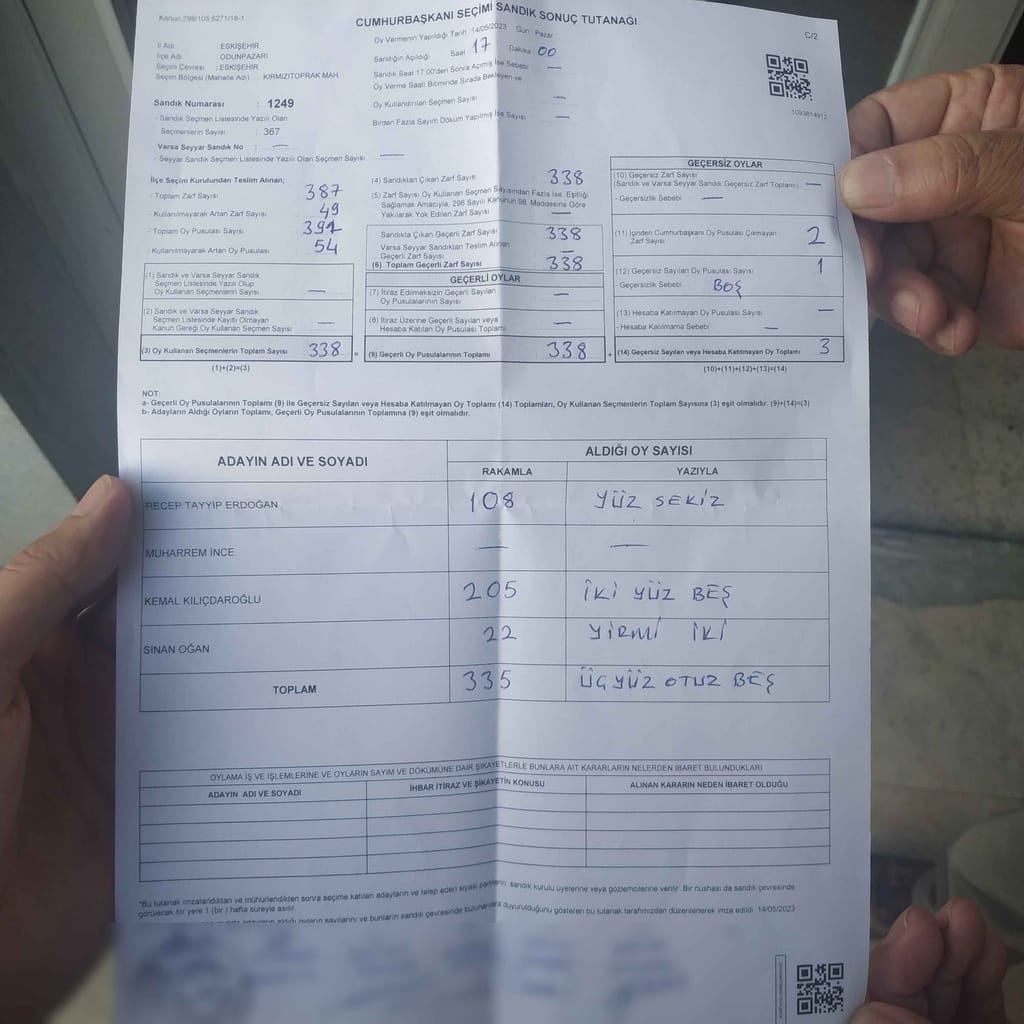 Kanun:298/105,6271/18-1
CUMHURBAŞKANI SEÇİMİ SANDIK SONUÇ TUTANAĞI
C/2
İl Adı : ESKİŞEHİR
İlçe Adı : ODUNPAZARI
Seçim Çevresi : ESKİŞEHİR
Seçim Bölgesi (Mahalle Adı) KIRMIZITOPRAK MAH.
Oy Vermenin Yapıldığı Tarih :14/05/2023 Gün : Pazar
Sandığın Açıldığı Saat 17 Dakika 00
Sandık Saat 17:00'den Sonra Açılmış İse Sebebi —
Oy Verme Saati Bitiminde Sırada Bekleyen ve
Oy Kullandırılan Seçmen Sayısı —
Birden Fazla Sayım Döküm Yapılmış İse Sayısı —
1093814912
Sandık Numarası : 1249
- Sandık Seçmen Listesinde Yazılı Olan
Seçmenlerin Sayısı : 367
Varsa Seyyar Sandık No : —
- Seyyar Sandık Seçmen Listesinde Yazılı Olan Seçmen Sayısı —
İlçe Seçim Kurulundan Teslim Alınan;
- Toplam Zarf Sayısı 387
- Kullanılmayarak Artan Zarf Sayısı 49
- Toplam Oy Pusulası Sayısı
- Kullanılmayarak Artan Oy Pusulası 54
(1) Sandık ve Varsa Seyyar Sandık
Seçmen Listesinde Yazılı Olup
Oy Kullanan Seçmenlerin Sayısı —
(2) Sandık ve Varsa Seyyar Sandık
Seçmen Listesinde Kayıtlı Olmayan
Kanun Gereği Oy Kullanan Seçmen Sayısı —
(3) Oy Kullanan Seçmenlerin Toplam Sayısı 338 =
(1)+(2)=(3)
(4) Sandıktan Çıkan Zarf Sayısı 338
(5) Zarf Sayısı Oy Kullanan Seçmen Sayısından Fazla İse, Eşitliği
Sağlamak Amacıyla, 298 Sayılı Kanunun 98. Maddesine Göre
Yakılarak Yok Edilen Zarf Sayısı —
Sandıkta Çıkan Geçerli Zarf Sayısı 338
Varsa Seyyar Sandıktan Teslim Alınan
Geçerli Zarf Sayısı —
(6) Toplam Geçerli Zarf Sayısı 338
GEÇERLİ OYLAR
(7) İtiraz Edilmeksizin Geçerli Sayılan
Oy Pusulalarının Sayısı —
(8) İtiraz Üzerine Geçerli Sayılan veya
Hesaba Katılan Oy Pusulası Toplamı —
(9) Geçerli Oy Pusulalarının Toplamı 338 +
GEÇERSİZ OYLAR
(10) Geçersiz Zarf Sayısı
(Sandık ve Varsa Seyyar Sandık Geçersiz Zarf Toplamı) —
- Geçersizlik Sebebi —
(11) İçinden Cumhurbaşkanı Oy Pusulası Çıkmayan
Zarf Sayısı 2
(12) Geçersiz Sayılan Oy Pusulası Sayısı 1
- Geçersizlik Sebebi BOŞ
(13) Hesaba Katılmayan Oy Pusulası Sayısı —
- Hesaba Katılmama Sebebi —
(14) Geçersiz Sayılan veya Hesaba Katılmayan Oy Toplamı 3
(10)+(11)+(12)+(13)=(14)
NOT:
a- Geçerli Oy Pusulalarının Toplamı (9) ile Geçersiz Sayılan veya Hesaba Katılmayan Oy Toplamı (14) Toplamları, Oy Kullanan Seçmenlerin Toplam Sayısına (3) eşit olmalıdır. (9)+(14)=(3)
b- Adayların Aldığı Oyların Toplamı, Geçerli Oy Pusulalarının Toplamına (9) eşit olmalıdır.
ADAYIN ADI VE SOYADI
ALDIĞI OY SAYISI
RAKAMLA YAZIYLA
RECEP TAYYİP ERDOĞAN 108 YÜZ SEKİZ
MUHARREM İNCE — —
KEMAL KILIÇDAROĞLU 205 İKİ YÜZ BEŞ
SİNAN OĞAN 22 YİRMİ İKİ
TOPLAM 335 ÜÇYÜZ OTUZ BEŞ
OYLAMA İŞ VE İŞLEMLERİNE VE OYLARIN SAYIM VE DÖKÜMÜNE DAİR ŞİKAYETLERLE BUNLARA AİT KARARLARIN NELERDEN İBARET BULUNDUKLARI
ADAYIN ADI VE SOYADI İHBAR İTİRAZ VE ŞİKAYETİN KONUSU ALINAN KARARIN NEDEN İBARET OLDUĞU
*Bu tutanak imzalandıktan ve mühürlendikten sonra seçime katılan adayların ve talep eden siyasi partilerin sandık kurulu üyelerine veya gözlemcilerine verilir. Bir nüshası da sandık çevresinde
görülecek bir yere 1 (bir) hafta süreyle asılır.
adayların aldığı oyların sayılarını ve bunların sandık çevresinde bulunanlara duyurulduğunu gösteren bu tutanak tarafımızdan düzenlenerek imza edildi. 14/05/2023